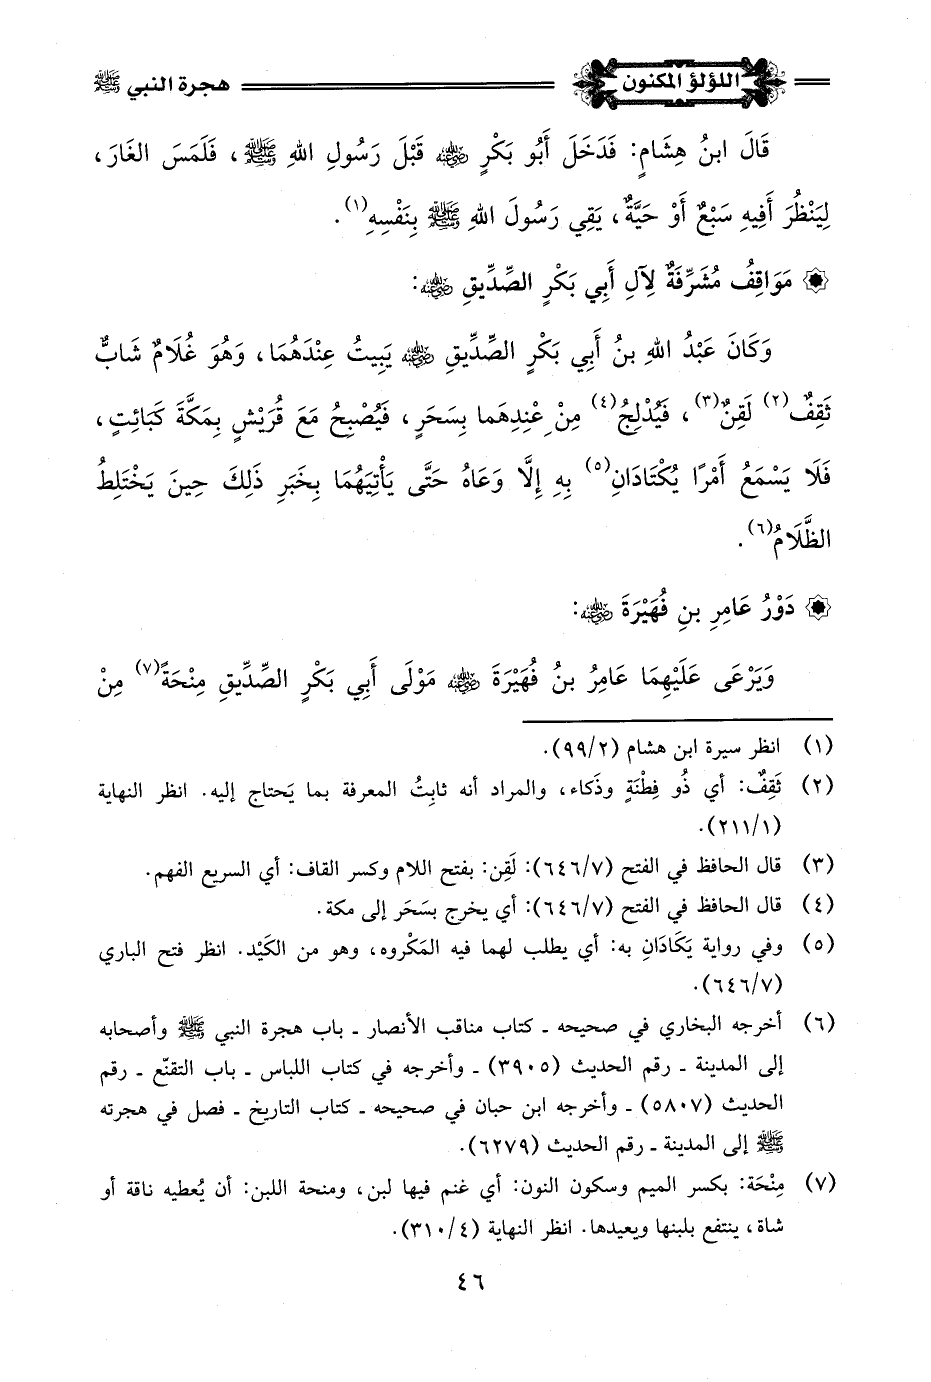 اللؤلؤ المكنون هجرة النبي ﷺ
قَالَ ابنُ هِشَامٍ: فَدَخَلَ أَبُو بَكْرٍ رضي الله عنه قَبْلَ رَسُولِ اللهِ ﷺ، فَلَمَسَ الغَارَ،
لِيَنْظُرَ أَفِيهِ سَبْعٌ أَوْ حَيَّةٌ، يَقِي رَسُولَ اللهِ ﷺ بِنَفْسِهِ(١).
۞ مَوَاقِفُ مُشَرِّفَةٌ لِآلِ أَبِي بَكْرٍ الصِّدِّيقِ رضي الله عنه:
وَكَانَ عَبْدُ اللهِ بنُ أَبِي بَكْرٍ الصِّدِّيقِ رضي الله عنه يَبِيتُ عِنْدَهُمَا، وَهُوَ غُلَامٌ شَابٌّ
ثَقِفٌ(٢) لَقِنٌ(٣)، فَيُدْلِجُ(٤) مِنْ عِنْدِهَما بِسَحَرٍ، فَيُصْبِحُ مَعَ قُرَيْشٍ بِمَكَّةَ كَبَائِتٍ،
فَلَا يَسْمَعُ أَمْرًا يُكْتَادَانِ(٥) بِهِ إِلَّا وَعَاهُ حَتَّى يَأْتِيَهُمَا بِخَبَرِ ذَلِكَ حِينَ يَخْتَلِطُ
الظَّلَامُ(٦).
۞ دَوْرُ عَامِرِ بنِ فُهَيْرَةَ رضي الله عنه:
وَيَرْعَى عَلَيْهِمَا عَامِرُ بنُ فُهَيْرَةَ رضي الله عنه مَوْلَى أَبِي بَكْرٍ الصِّدِّيقِ مِنْحَةً(٧) مِنْ
(١) انظر سيرة ابن هشام (٩٩/٢).
(٢) ثَقِفٌ: أي ذُو فِطْنَةٍ وذَكاء، والمراد أنه ثابِتُ المعرفة بما يَحتاج إليه. انظر النهاية
(٢١١/١).
(٣) قال الحافظ في الفتح (٦٤٦/٧): لَقِن: بفتح اللام وكسر القاف: أي السريع الفهم.
(٤) قال الحافظ في الفتح (٦٤٦/٧): أي يخرج بسَحَر إلى مكة.
(٥) وفي رواية يَكَادَانِ به: أي يطلب لهما فيه المَكْروه، وهو من الكَيْد. انظر فتح الباري
(٦٤٦/٧).
(٦) أخرجه البخاري في صحيحه ـ كتاب مناقب الأنصار ـ باب هجرة النبي ﷺ وأصحابه
إلى المدينة ـ رقم الحديث (٣٩٠٥) ـ وأخرجه في كتاب اللباس ـ باب التقنّع ـ رقم
الحديث (٥٨٠٧) ـ وأخرجه ابن حبان في صحيحه ـ كتاب التاريخ ـ فصل في هجرته
ﷺ إلى المدينة ـ رقم الحديث (٦٢٧٩).
(٧) مِنْحَة: بكسر الميم وسكون النون: أي غنم فيها لبن، ومنحة اللبن: أن يُعطيه ناقة أو
شاة، ينتفع بلبنها ويعيدها. انظر النهاية (٣١٠/٤).
٤٦